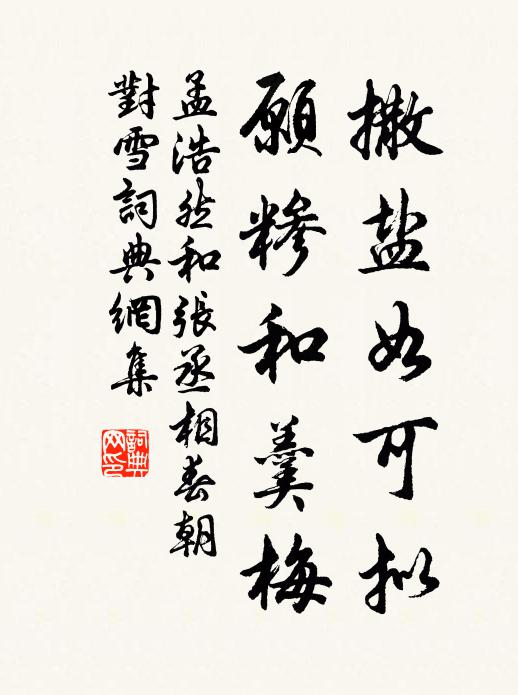 撒盐如可拟
願糁和羹梅
孟浩然和張丞相春朝
對雪詞典網集
詞典网印